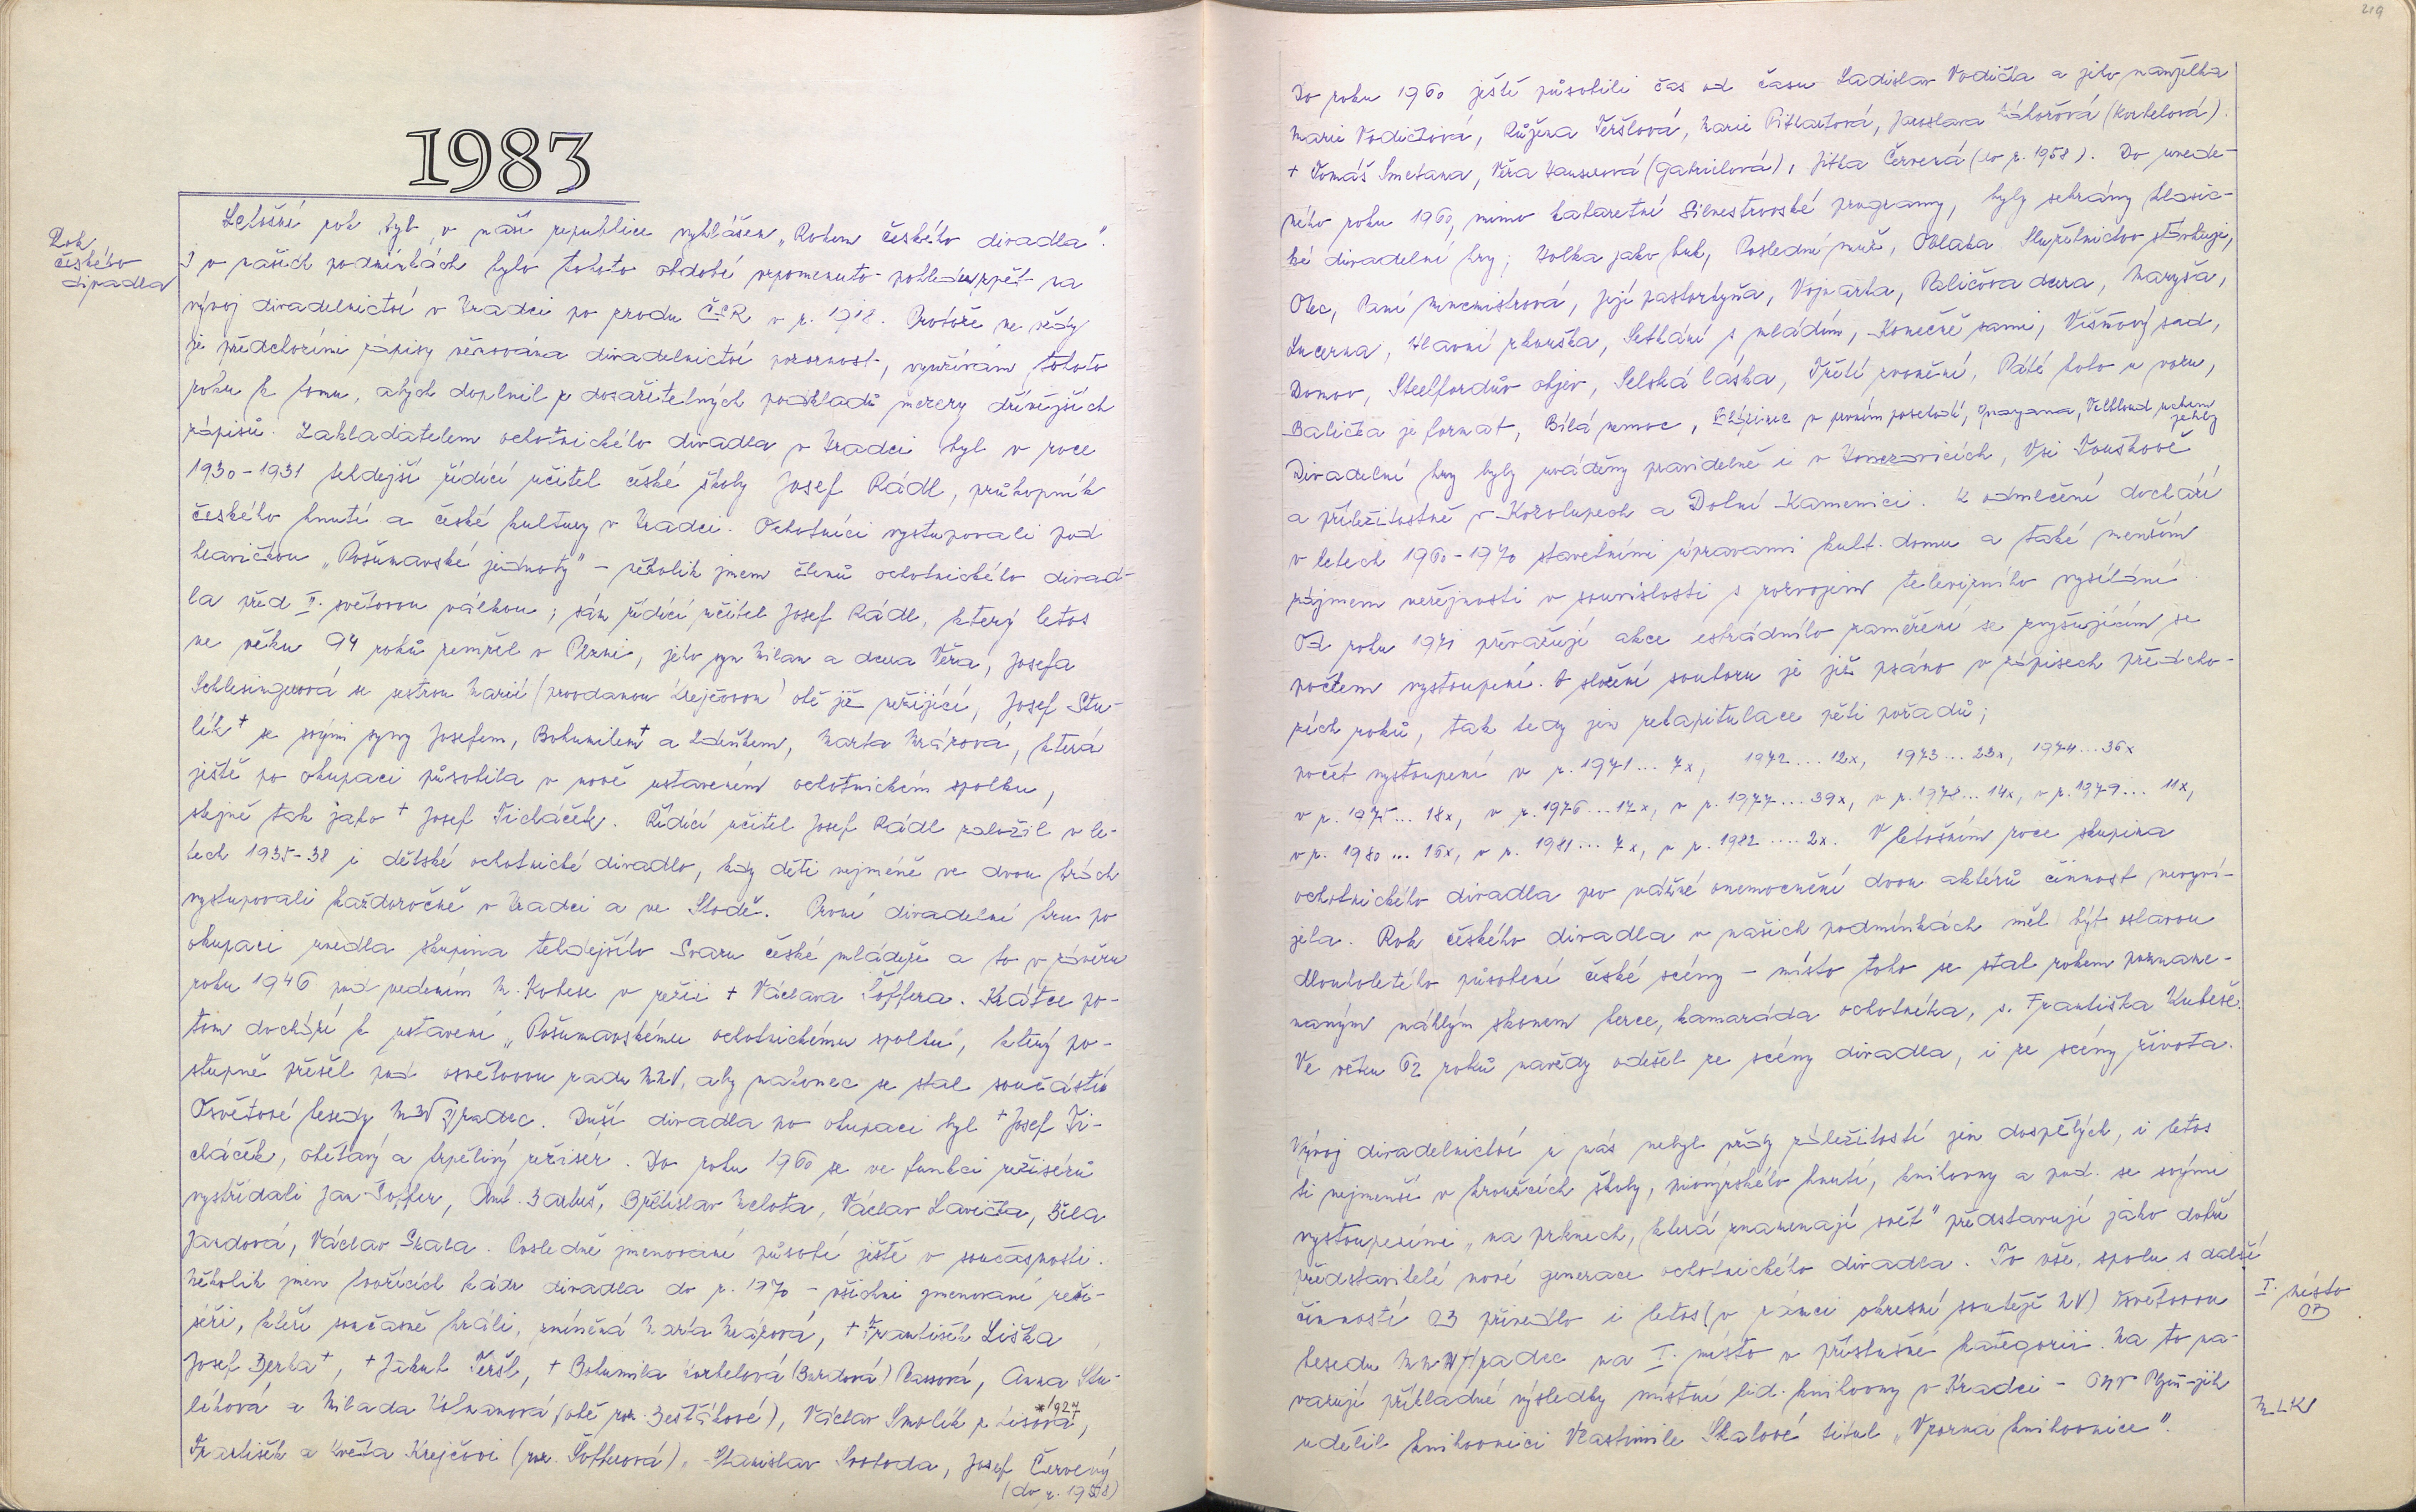 1983
Rok
českého
divadla
Letošní rok byl v naší republice vyhlášen „Rokem českého divadla".
I v našich podmínkách bylo tohoto období vzpomenuto - pohledem zpět na
vývoj divadelnictví v Hradci po zrodu ČSR v r. 1918. Protože ne vždy
je předchozími zápisy věnována divadelnictví pozornost, využívám tohoto
roku k tomu, abych doplnil z dosažitelných podkladů mezery dřívějších
zápisů. Zakladatelem ochotnického divadla v Hradci byl v roce
1930-1931 tehdejší řídící učitel české školy Josef Rádl, průkopník
českého hnutí a české kultury v Hradci. Ochotníci vystupovali pod
hlavičkou „Pošumavské jednoty" - několik jmen členů ochotnického divad-
la před II. světovou válkou; sám řídící učitel Josef Rádl, který letos
ve věku 94 roků zemřel v Plzni, jeho syn Milan a dcera Věra, Josefa
Schlesingerová se sestrou Marií (provdanou Krejčovou) obě již nežijící, Josef Stu-
lík + se svými syny Josefem, Bohumilem + a Zdeňkem, Marta Mrázová, která
ještě po okupaci působila v nově ustaveném ochotnickém spolku,
stejně tak jako + Josef Ticháček. Řídící učitel Josef Rádl založil v le-
tech 1935-38 i dětské ochotnické divadlo, kdy děti nejméně ve dvou hrách
vystupovali každoročně v Hradci a ve Stodě. První divadelní hru po
okupaci uvedla skupina tehdejšího Svazu české mládeže a to v závěru
roku 1946 pod vedením M. Kobese v režii + Václava Šoffera. Krátce po-
tom dochází k ustavení „Pošumavskému ochotnickému spolku", který po-
stupně přešel pod osvětovou radu MNV, aby nakonec se stal součástí
Osvětové besedy MNV Hradec. Duší divadla po okupaci byl + Josef Ti-
cháček, obětavý a trpělivý režisér. Do roku 1960 se ve funkci režisérů
vystřídali Jan Šoffer, Ant. Bartuš, Břetislav Melota, Václav Lavička, Běla
Jandová, Václav Skala. Posledně jmenovaní působí ještě v současnosti.
Několik jmen tvořících kádr divadla do r. 1970 - všichni jmenovaní reži-
séři, kteří současně hráli, zmíněná Marta Mrázová, + František Liška
Josef Berka +, + Jakub Teršl, + Bohumila Korbelová (Burdová) Rassová, Anna Stu-
líková a Milada Holmanová (obě roz. Bešťákové), Václav Smolík z Lisova *1927,
František a Květa Krejčovi (roz. Šofferová), Stanislav Svoboda, Josef Červený
(do r. 1958)
219
Do roku 1960 ještě působili čas od času Ladislav Vodička a jeho manželka
Marie Vodičková, Růžena Teršlová, Marie Pithartová, Jaroslava Táborová (Korbelová).
+ Tomáš Smetana, Věra Hauserová (Gabrielová), Jitka Červená (do r. 1958). Do uvede-
ného roku 1960, mimo kabaretní Silvestrovské programy, byly sehrány klasic-
ké divadelní hry; Holka jako buk, Poslední muž, Oblaka, Služebnictvo stávkuje,
Otec, Paní mincmistrová, Její pastorkyňa, Vojnarka, Paličova dcera, Maryša,
Lucerna, Hlavní zkouška, Setkání s mládím, Konečně sami, Višňový sad,
Domov, Steelfordův objev, Selská láska, Třetí zvonění, Páté kolo u vozu,
Balička je formát, Bílá nemoc, Chlapinec v prvním poschodí, Velbloud uchem
jehly
Divadelní hry byly uváděny pravidelně i v Honezovicích, Vsi Touškově
a příležitostně v Kozolupech a Dolní Kamenici. K odmlčení dochází
v letech 1960-1970 stavebními úpravami kult. domu a také menším
zájmem veřejnosti v souvislosti s rozvojem televizního vysílání.
Od roku 1971 převažují akce estrádního zaměření se zvyšujícím se
počtem vystoupení. O složení souboru je již psáno v zápisech předcho-
zích roků, tak tedy jen rekapitulace pěti pořadů;
počet vystoupení v r. 1971 ... 7x, 1972 .... 12x, 1973 ... 23x, 1974 ... 36x
v r. 1975 ... 18x, v r. 1976 ... 17x, v r. 1977 ... 39x, v r. 1978 ... 14x, v r. 1979 ... 11x,
v r. 1980 ... 16x, v r. 1981 ... 7x, v r. 1982 .... 2x. V letošním roce skupina
ochotnického divadla pro vážné onemocnění dvou aktérů činnost nevyví-
jela. Rok českého divadla v našich podmínkách měl být oslavou
dlouholetého působení české scény - místo toho se stal rokem pozname-
naným náhlým skonem herce, kamaráda ochotníka, s. Františka Kubeše.
Ve věku 62 roků navždy odešel ze scény divadla, i ze scény života.
Vývoj divadelnictví u nás nebyl vždy záležitostí jen dospělých, i letos
ti nejmenší v kroužcích školy, pionýrského hnutí, knihovny a pod. se svými
vystoupeními „na prknech, která znamenají svět" představují jako dobří
představitelé nové generace ochotnického divadla. To vše, spolu s další
činností OB přivedlo i letos (v rámci okresní soutěže NV) Osvětovou
besedu MNV Hradec na I. místo v příslušné kategorii. Na to na-
vazují příkladné výsledky místní lid. knihovny v Hradci - ONV Plzeň-jih
udělil knihovnici Vlastimile Skalové titul „Vzorná knihovnice".
I. místo
OB
MLK